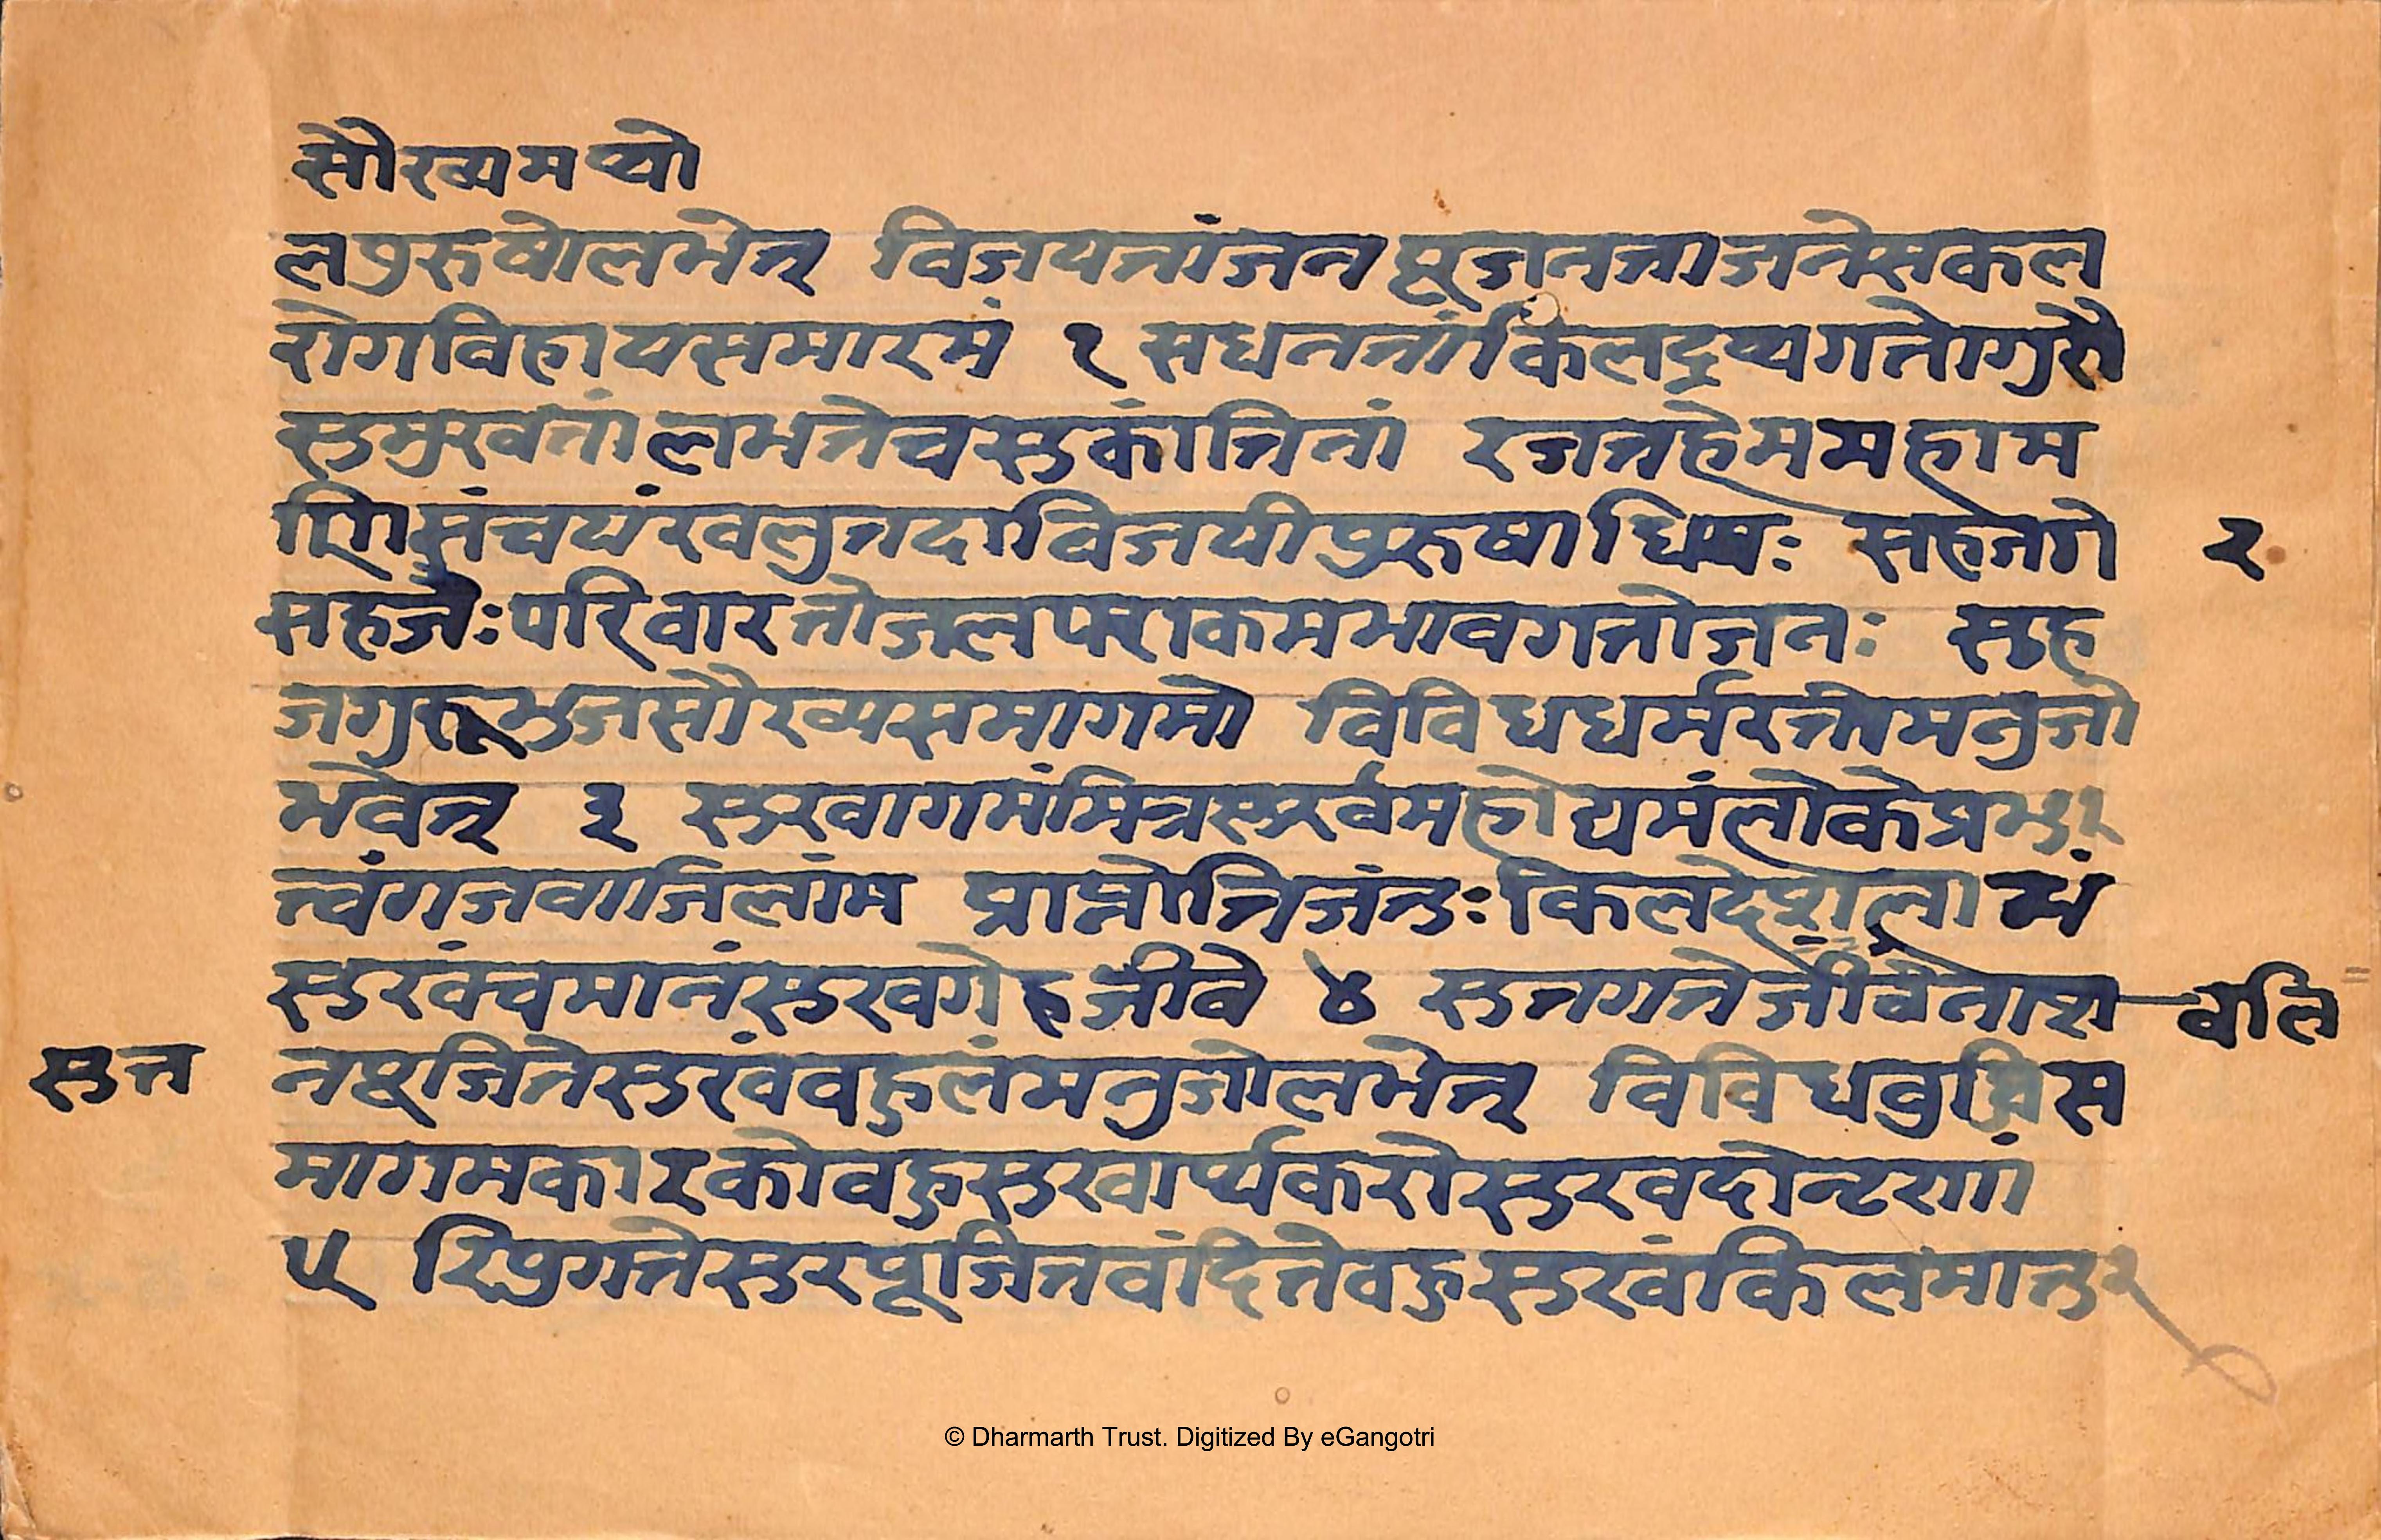 सौख्यमथो
लपुरुषोलभेत् विजयतांजनपूजनताजनेसकल
रोगविहायसमारभं १ सधनतांकिलद्रव्यगतेगुरौ
सुमुखतांलभतेचसुकांतितां रजतहेममहाम
णिसंचयंखलुतदाविजयीपुरुषाधिपः सहजगे २
सहजैःपरिवारतोजलपराक्रमभावगतोजनः सुह
जगुरुभुजसौख्यसमागमो विविधधर्मरतोमनुजो
भवेत् ३ सुखागमंमित्रसुखंमहोद्यमंलोकेप्रभु
त्वंगजवाजिलांभ प्राप्नोतिजंतुःकिलदेशला भं
सुखंचमानंसुखगेहजीवे ४ सुतगतेजीवेनाश वलि
सुत नपूजितेसुखंवहुलंमनुजोलभेत् विविधवुद्धिस
मागमकारकोवहुसुखार्थकरोसुखदोनृणां
५ रिपुगतेसुरपूजितवंदितेवहुसुखंकिलमातु
© Dharmarth Trust. Digitized By eGangotri